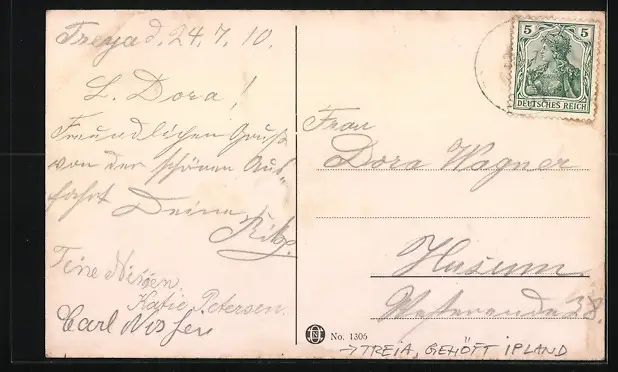 Treya d. 24.7.10.
L. Dora!
Freundlichen Gruß
von der schönen Aus"
fahrt Deine
Tine Nissen
Katie Petersen.
Carl Nissen
5 5
DEUTSCHES REICH
Frau
Dora Wagner
Husum.
Westerende 28.
No. 1305
→TREIA, GEHÖFT IPLAND